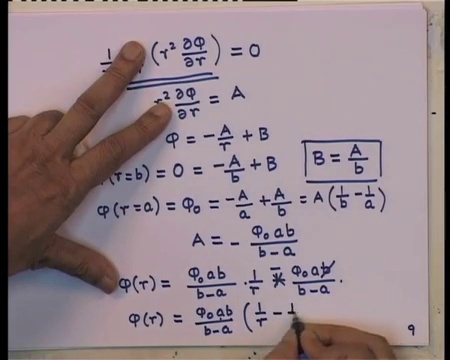 1/ (r² ∂φ/∂r) = 0
r² ∂φ/∂r = A
φ = -A/r + B
(r=b) = 0 = -A/b + B
B = A/b
φ(r=a) = φ₀ = -A/a + A/b = A(1/b - 1/a)
A = - φ₀ab/(b-a)
φ(r) = φ₀ab/(b-a) · 1/r - φ₀ab/(b-a) ·
φ(r) = φ₀ab/(b-a) (1/r - 1
9